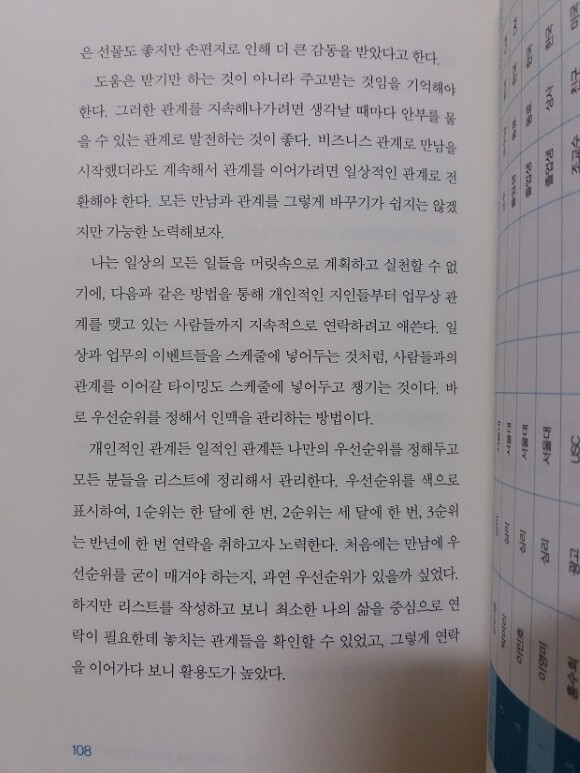 은 선물도 좋지만 손편지로 인해 더 큰 감동을 받았다고 한다.
도움은 받기만 하는 것이 아니라 주고받는 것임을 기억해야
한다. 그러한 관계를 지속해나가려면 생각날 때마다 안부를 물
을 수 있는 관계로 발전하는 것이 좋다. 비즈니스 관계로 만남을
시작했더라도 계속해서 관계를 이어가려면 일상적인 관계로 전
환해야 한다. 모든 만남과 관계를 그렇게 바꾸기가 쉽지는 않겠
지만 가능한 노력해보자.
나는 일상의 모든 일들을 머릿속으로 계획하고 실천할 수 없
기에, 다음과 같은 방법을 통해 개인적인 지인들부터 업무상 관
계를 맺고 있는 사람들까지 지속적으로 연락하려고 애쓴다. 일
상과 업무의 이벤트들을 스케줄에 넣어두는 것처럼, 사람들과의
관계를 이어갈 타이밍도 스케줄에 넣어두고 챙기는 것이다. 바
로 우선순위를 정해서 인맥을 관리하는 방법이다.
개인적인 관계든 일적인 관계든 나만의 우선순위를 정해두고
모든 분들을 리스트에 정리해서 관리한다. 우선순위를 색으로
표시하여, 1순위는 한 달에 한 번, 2순위는 세 달에 한 번, 3순위
는 반년에 한 번 연락을 취하고자 노력한다. 처음에는 만남에 우
선순위를 굳이 매겨야 하는지, 과연 우선순위가 있을까 싶었다.
하지만 리스트를 작성하고 보니 최소한 나의 삶을 중심으로 연
락이 필요한데 놓치는 관계들을 확인할 수 있었고, 그렇게 연락
을 이어가다 보니 활용도가 높았다.
108
이민호 심리 서울대 졸업생
이영미 심리 서울대 졸업생 상사 한국
홍수희 광고 USC 조교수 친구 미국